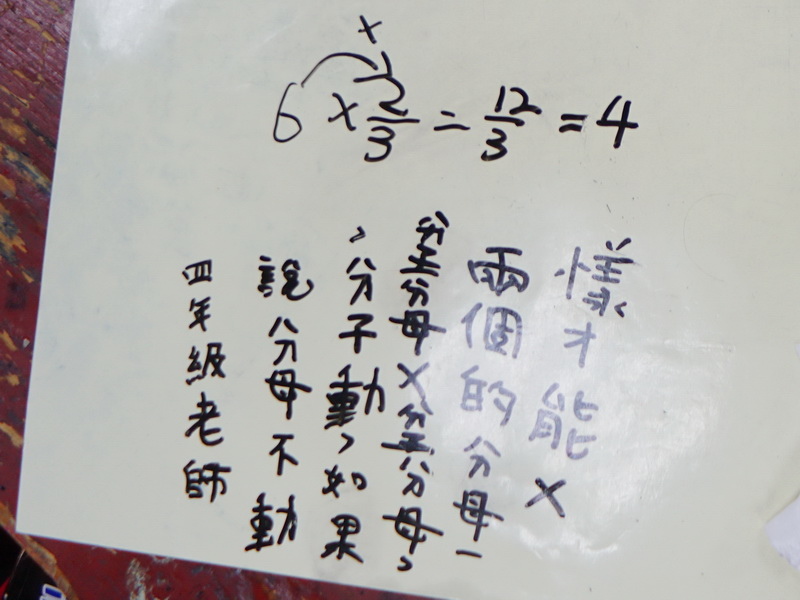 ×
6 × 2/3 = 12/3 = 4
四年級老師
說分母不動
，分子動，如果
分母×分母，
兩個的分母一
樣才能×